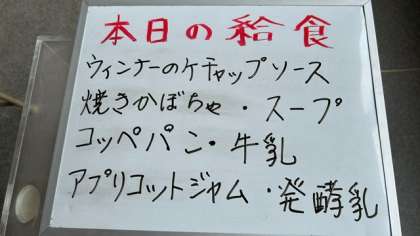 本日の給食
ウィンナーのケチャップソース
焼きかぼちゃ・スープ
コッペパン・牛乳
アプリコットジャム・発酵乳